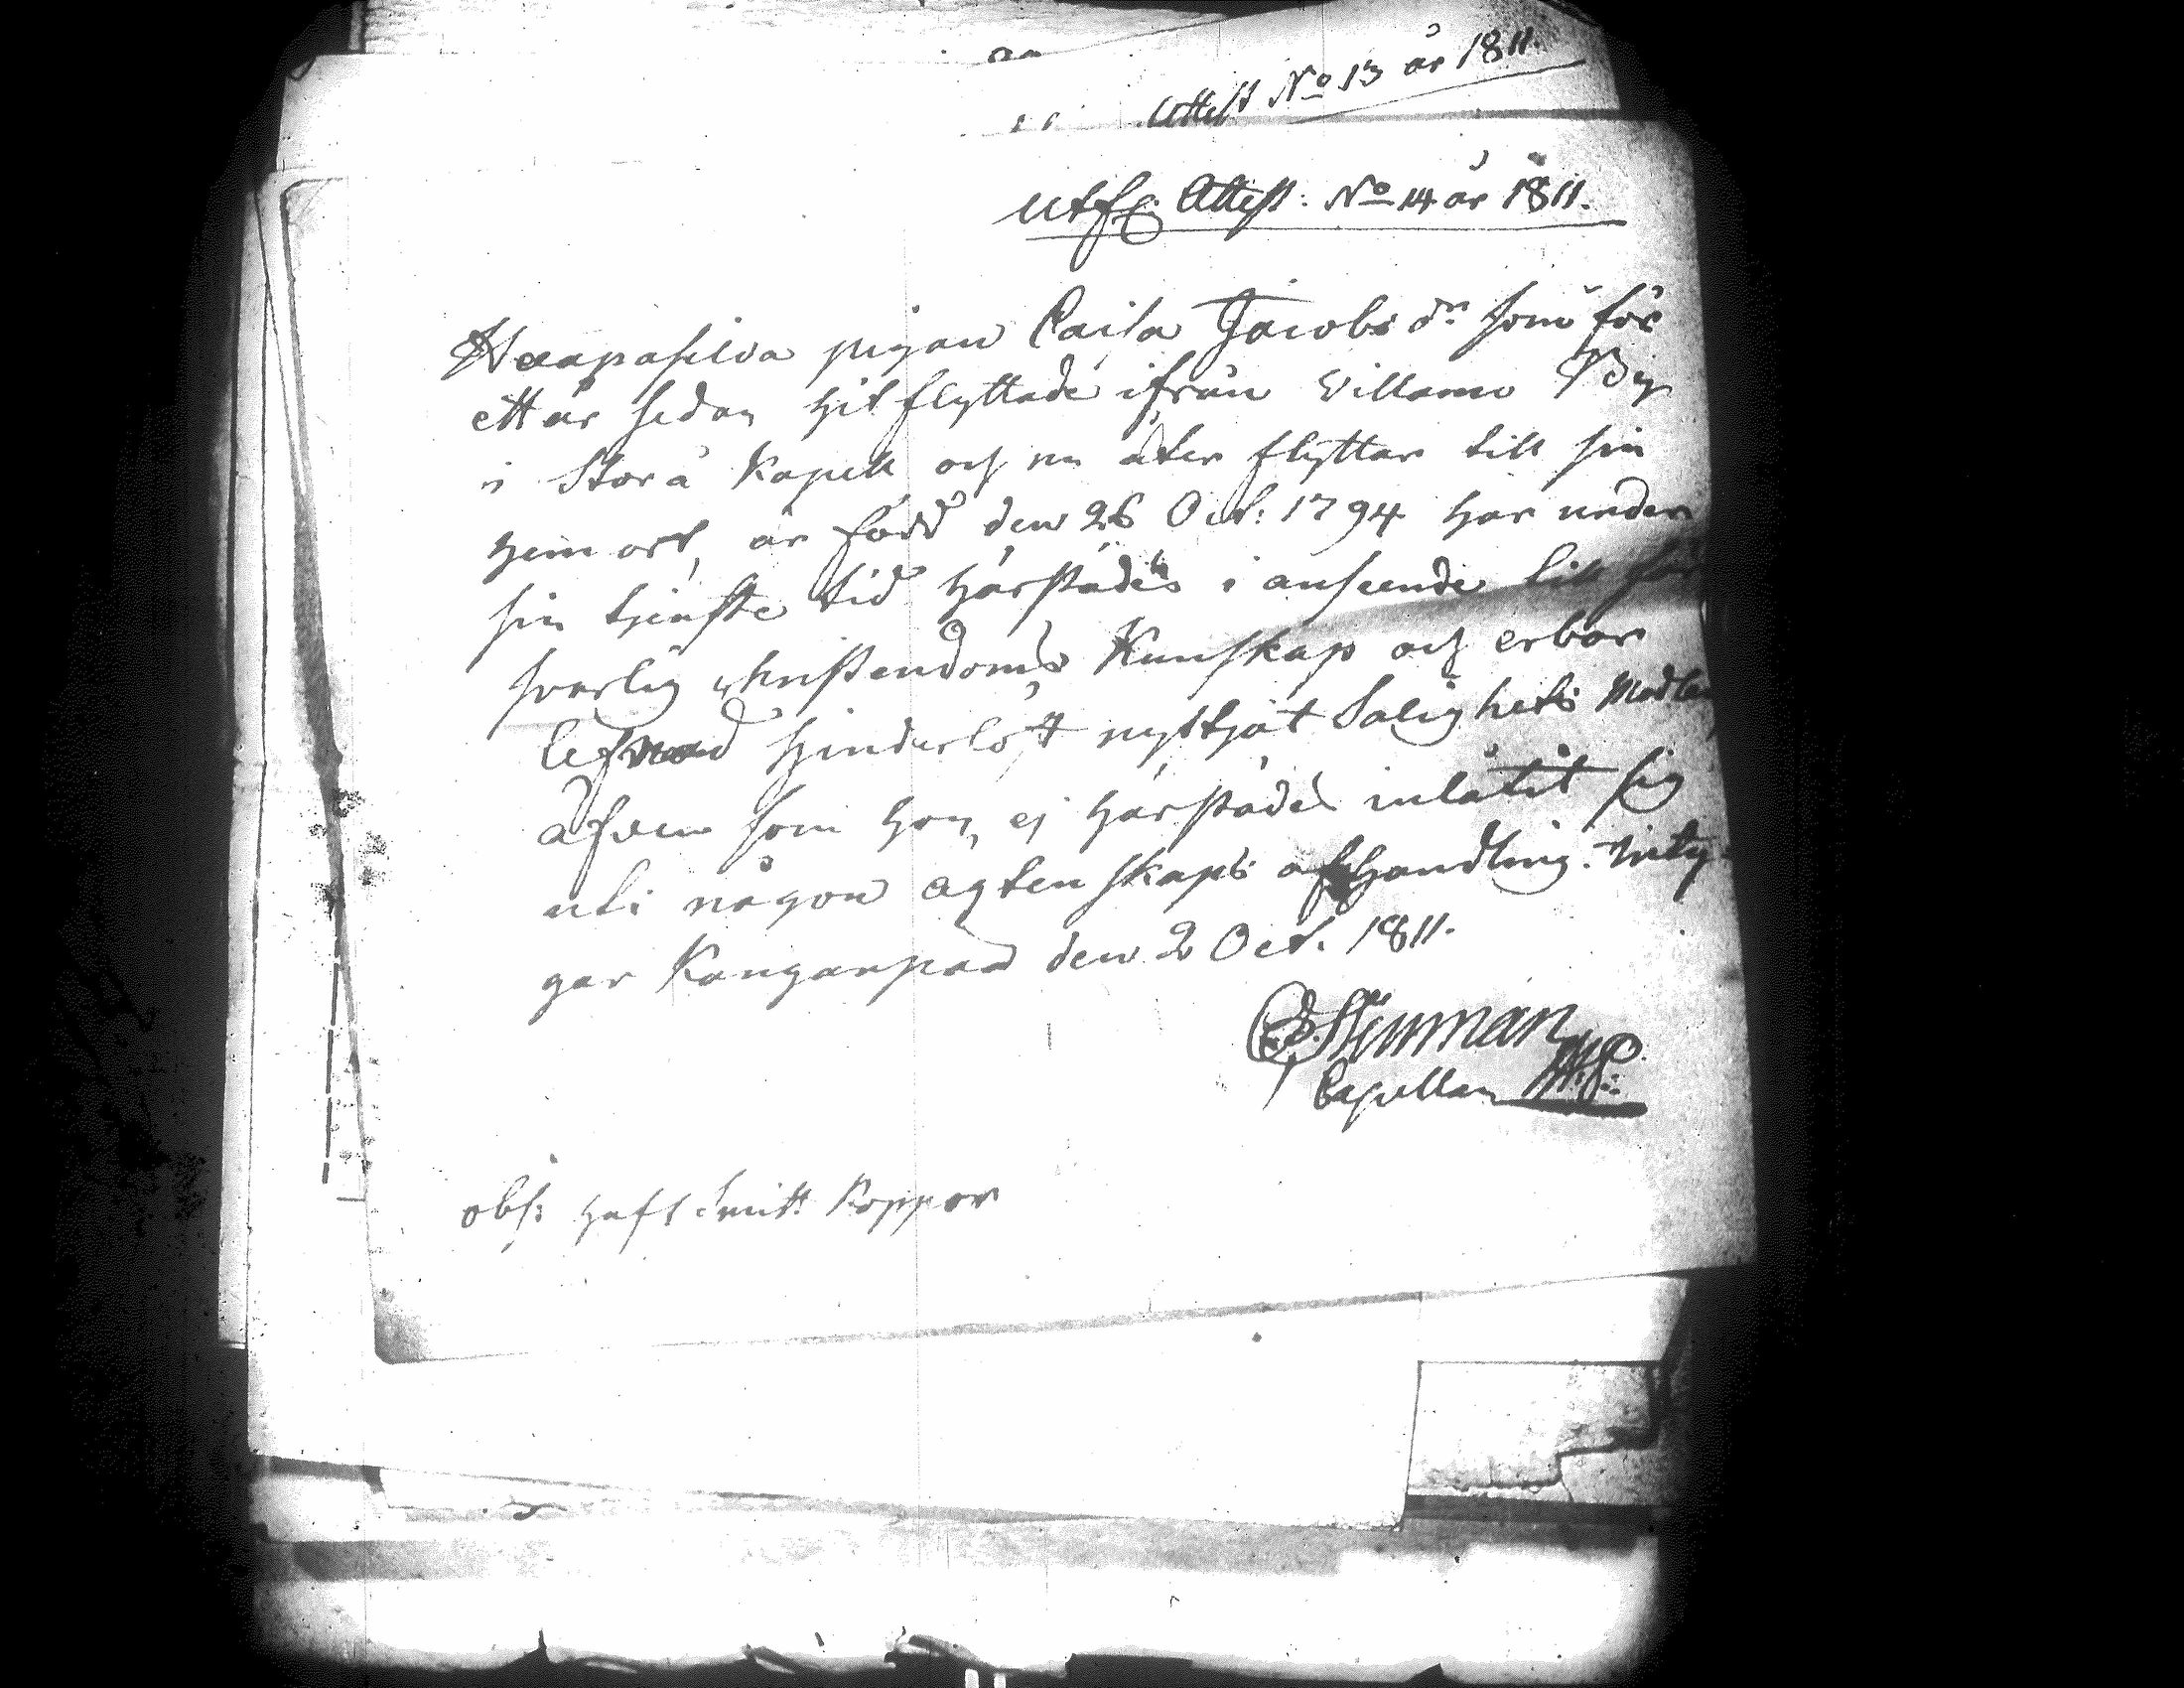 Attest No 13 år 1811.
Utfl. Attest. No 14 år 1811.
Haapasilda pigan Caisa Jacobs dr som för
ett år sedan hitflyttade ifrån Villamo By
i Storå Kapell och nu åter flyttar till sin
hemort, är född den 26 Oct: 1794 har under
sin tjenste tid härstädes i anseende till för
svarlig christendoms Kunskap och erbar
lefnad hinderlöst nyttjat Salighets Medlen
äfven som hon ej härstädes inlåtit sig
uti någon ägtenskaps afhandling. Inty-
gar Kangarpää den 2 Oct. 1811.
Stenman
Capellan
obs: haft smitt Koppor